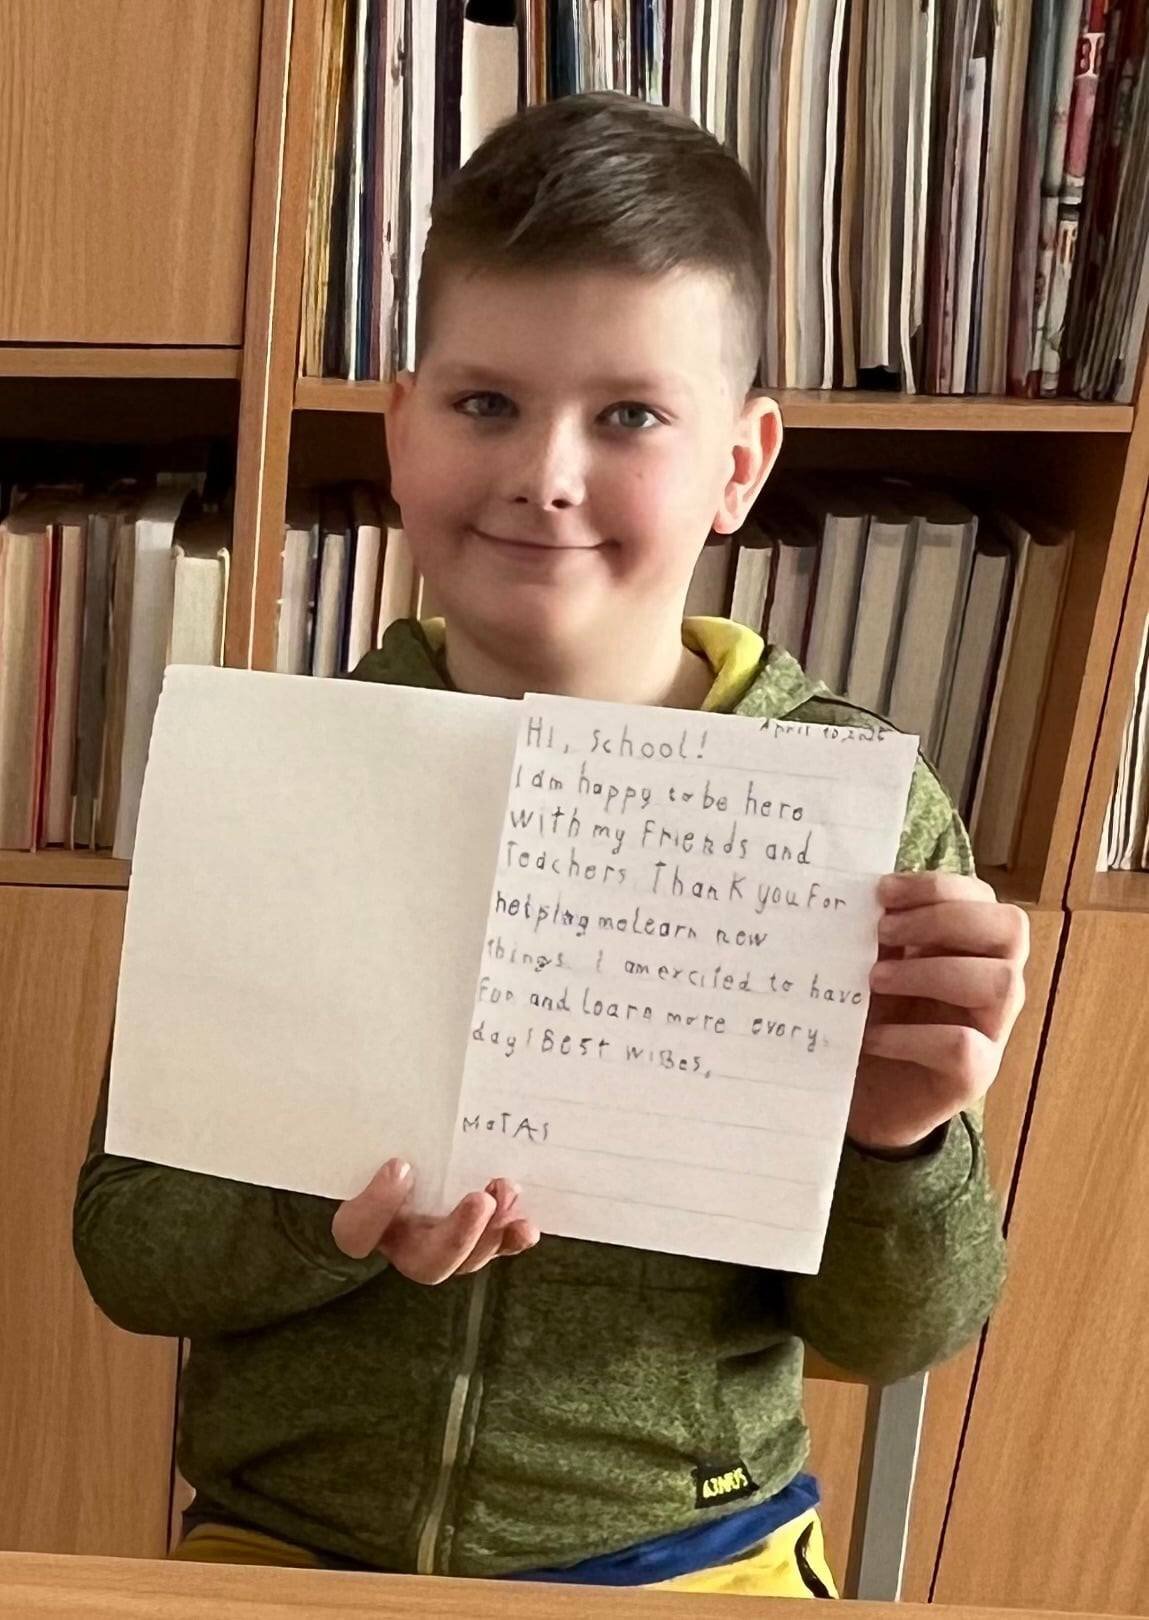 April 10, 2025
Hi, school!
I am happy to be here
with my Friends and
Teachers. Thank you For
helping me Learn new
things. I am excited to have
Fun and Learn more every
day! Best wishes,
MaTAs